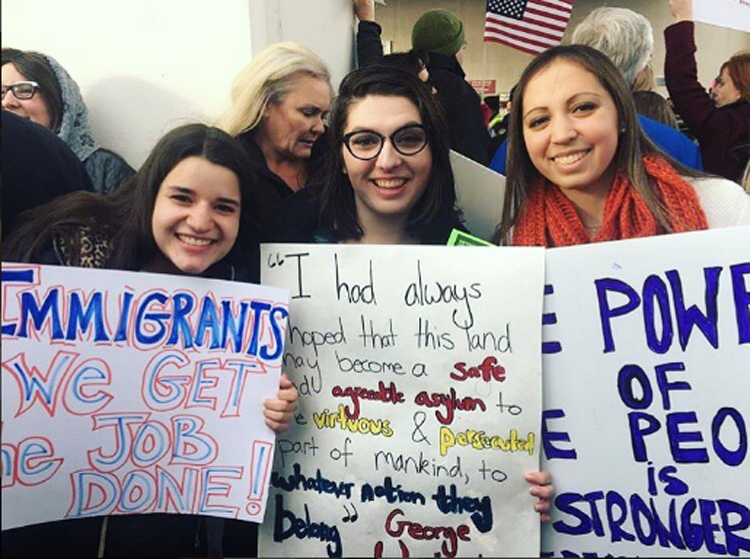 IMMIGRANTS
We GET
he JOB
DONE!
"I had always
hoped that this land
may become a safe
agreeable asylum to
e virtuous & persecuted
part of mankind, to
whatever nation they
belong" George
E POWE
OF
E PEO
is
STRONGER